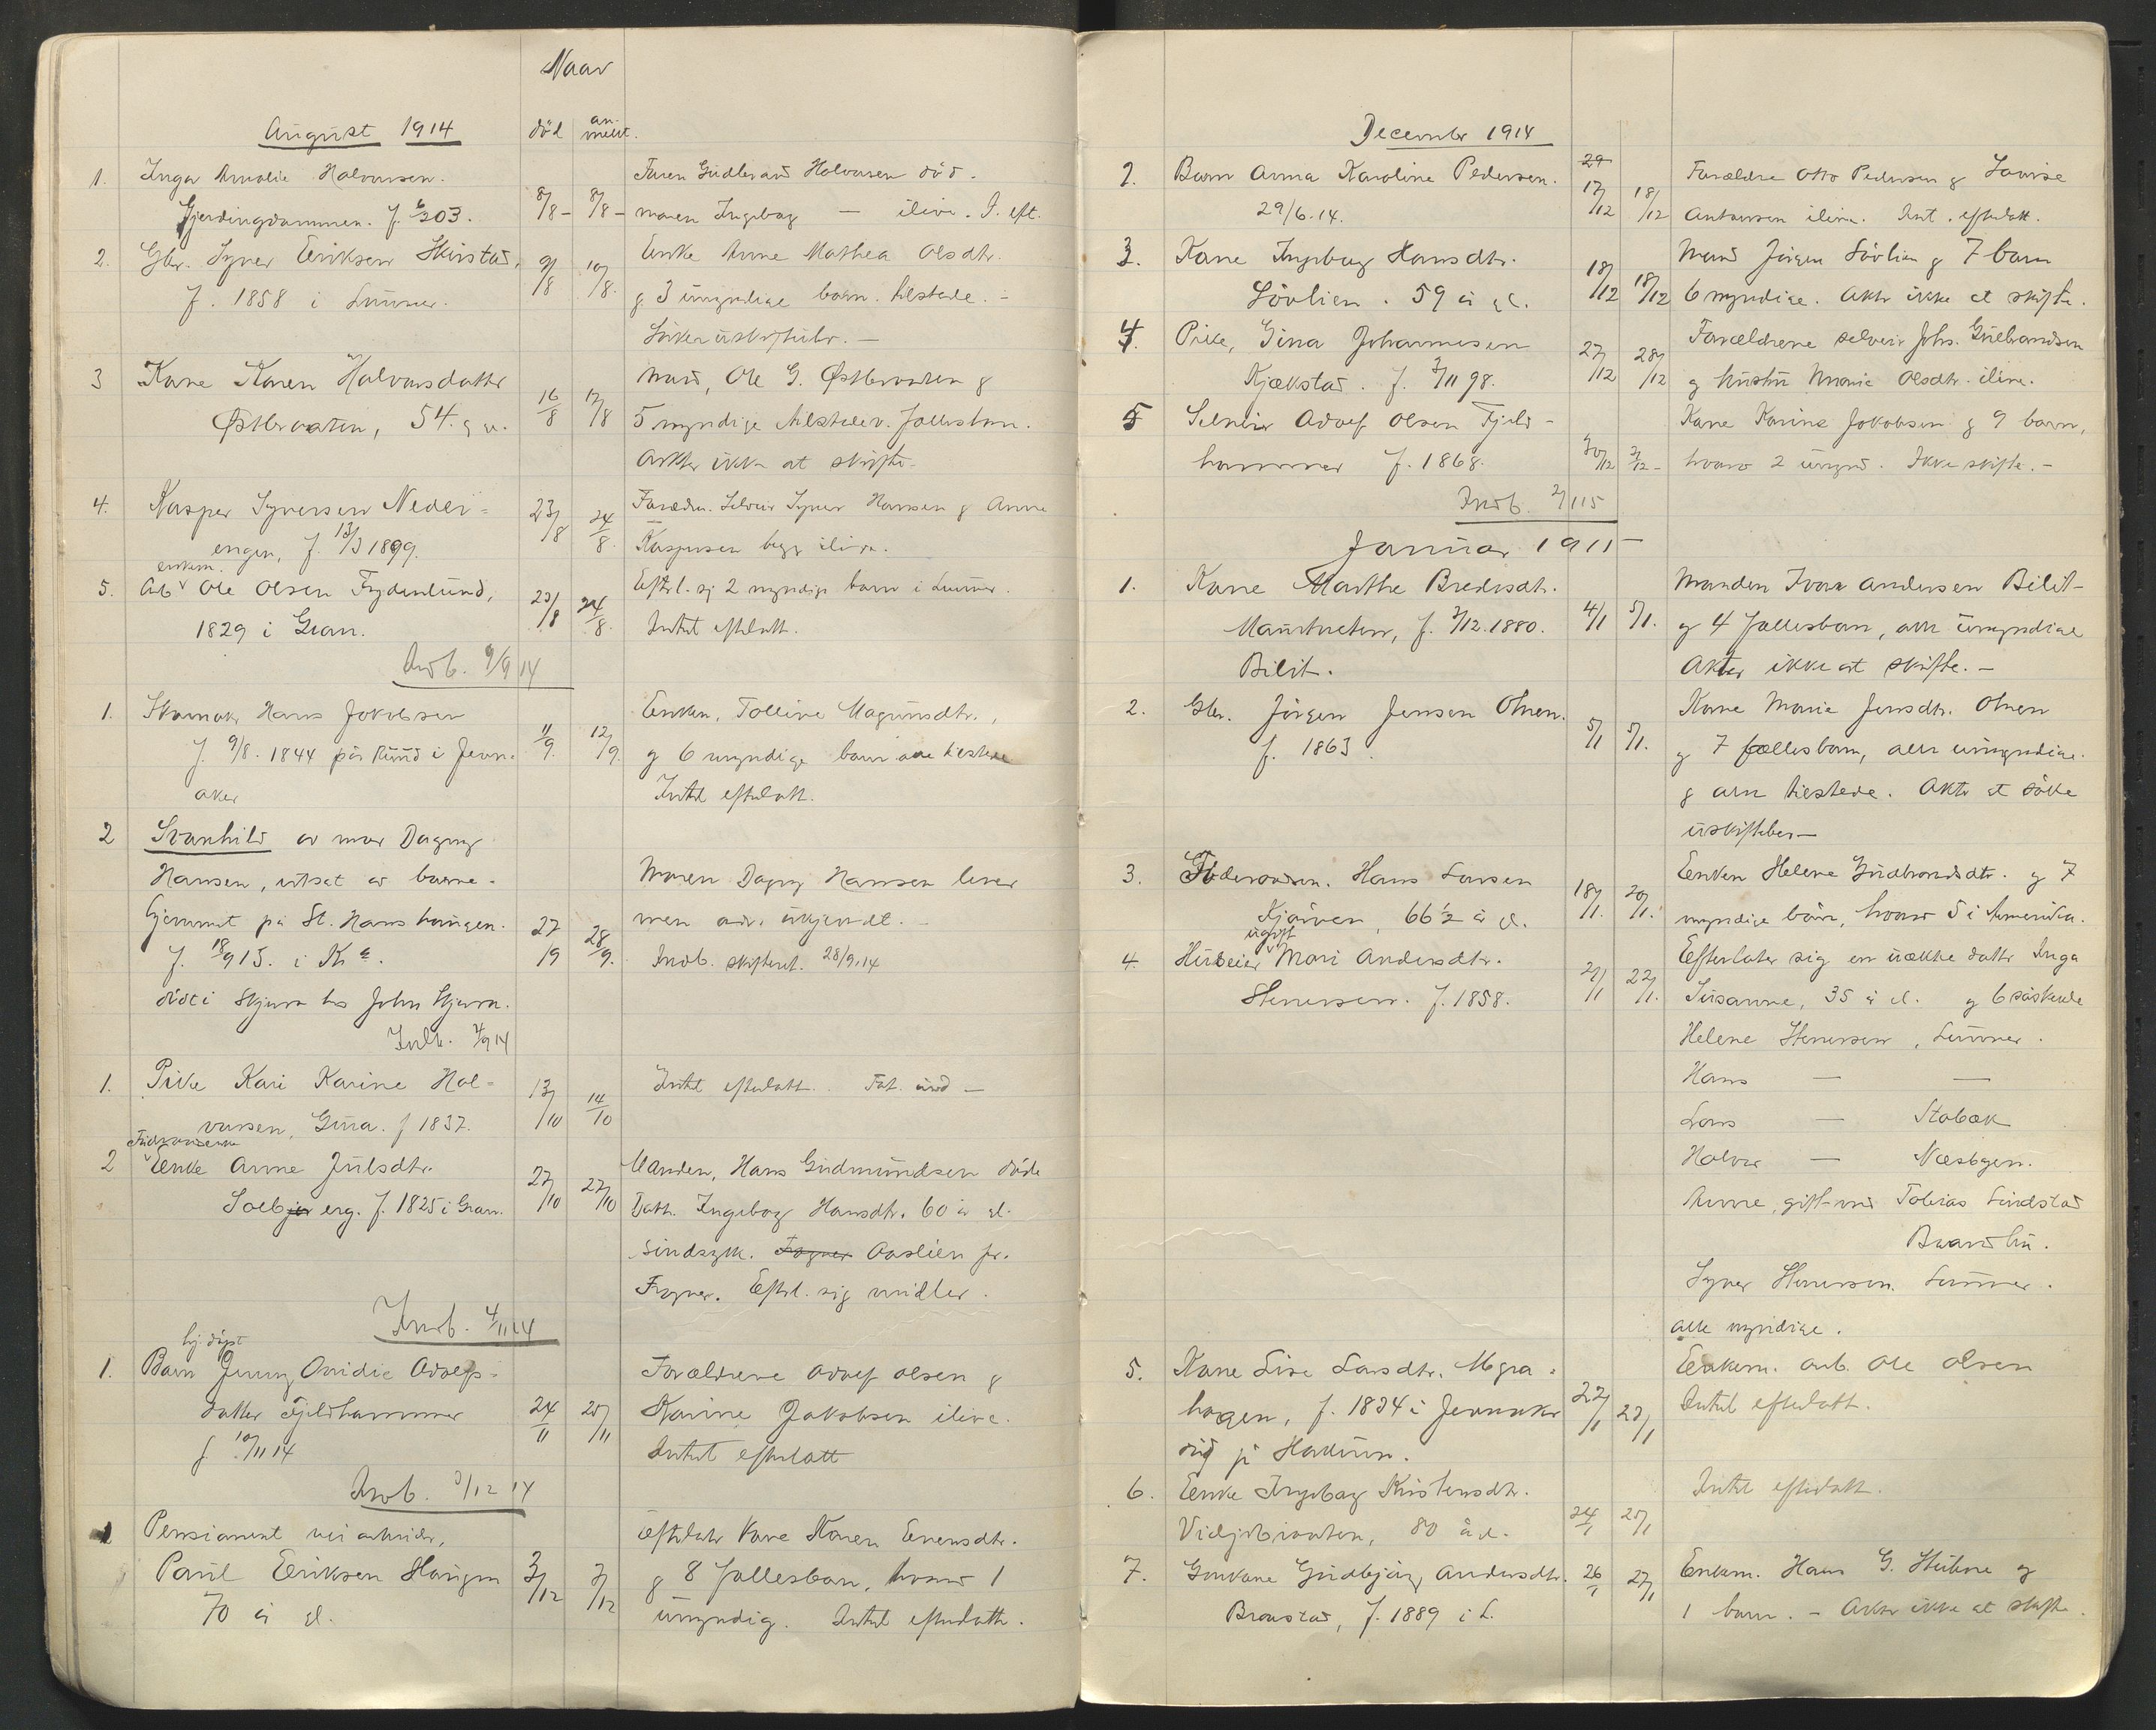 Naar
August 1914
død an-
meldt.
1. Inga Amalie Halvorsen.
Gjerdingdammen. f. 6/2 03.
8/8 - 8/8 -
Faren Gudbrand Halvorsen død.
moren Ingeborg — ilive. I. eft.
2. Gbr. Syver Eriksen Skirstad,
f. 1858 i Lunner.
9/8 10/8.
Enke Anne Mathea Olsdtr.
g 3 umyndige barn. tilstede. -
Søker uskiftebr. -
3 Kone Karen Halvorsdatter
Østbraaten, 54. g ..
16/8 17/8
Mand, Ole G. Østbraaten g
5 myndige tilstedev. fællesbarn.
Akter ikke at skifte.
4. Kasper Syversen Neder-
engen, f. 13/3 1899.
23/8 24/8.
Forældr. Selveier Syver Hansen g Anne
Kaspersen begge ilive.
5. Arb enkem. Ole Olsen Frydenlund,
1829 i Gran.
23/8 24/8.
Efterl. sig 2 myndige barn i Lunner.
Intet efterlatt.
Indb. 9/9 14
1. Skomaker Hans Jakobsen
f. 9/8. 1844 på Rund i Jevn-
aker
11/9. 12/9.
Enken, Polline Magnusdtr.,
g 6 myndige barn alle tilstede
Intet efterlatt.
2 Svanhild av mor Dagny
Hansen, utsat av barne-
hjemmet på St. Hanshaugen.
f. 18/9 13. i Kra.
død i Skjerva hos John Skjerva.
27/9 28/9.
Moren Dagny Hansen lever
men adr. ukjendt. -
Indb. skifteret. 28/9.14
Indb. 9 14
1. Pike Kari Karine Hal-
vorsen, Grua. f 1837.
13/10 14/10
Intet efterlatt. Fat. und -
2 Enke Anne Julsdtr.
Solbjerg. f. 1825 i Gran.
27/10 27/10
Manden, Hans Gudmundsen døde
Datt. Ingeborg Hansdtr. 60 år gl.
sindsyk. Frogner Aaslien pr.
Frogner. Efterl. sig midler.
Indb. 4/11 14
1. Barn hj. døpt Jenny Ovidie Adolfs-
datter Fjeldhammer
f 10/11 14
24/11 25/11
Forældrene Adolf Olsen g
Karine Jakobsen ilive.
Intet efterlatt
Indb. 3/12 14
1 Pensionert veiarbeider,
Paul Eriksen Haugen
70 år gl.
3/12 3/12
efterlater kone Karen Evensdtr.
g 8 fællesbarn, hvorav 1
umyndig. Intet efterlatt.
December 1914
2. Barn Anna Karoline Pedersen.
29/6. 14.
29
17/12 18/12
Forældre Otto Pedersen g Lovise
Antonsen ilive. Int. efterlatt.
3. Kone Ingeborg Hansdtr.
Løvlien. 59 år gl.
18/12 18/12
Mand Jørgen Løvlien g 7 barn
6 myndige. Akter ikke at skifte.
4. Pike, Gina Johannesen
Kjækstad. f. 3/11 98.
27/12 28/12
Forældrene selveier Johs. Gulbrandsen
g hustru Marie Olsdtr. ilive.
5 Selveier Adolf Olsen Fjeld-
hammer f. 1868.
30/12 31/12 -
Kone Karine Jakobsen g 9 barn,
hvorav 2 umynd. Ikke skifte. -
Indb. 2/1 15
Januar 1915
1. Kone Marthe Bredesdtr.
f. 3/12. 1880.
Bilit.
4/1 5/1.
Manden Ivar Andersen Bilit
g 4 fællesbarn, alle umyndige
Akter ikke at skifte. -
2. Gbr. Jørgen Jensen Olnen.
f. 1863.
5/1 5/1.
Kone Marie Jensdtr. Olnen
g 7 fællesbarn, alle umyndige.
g alle tilstede. Akter at søke
uskiftebev -
3. Føderaadsm. Hans Larsen
Kjørven, 66 1/2 år gl.
18/1. 20/1.
Enken Helene Gudbrandsdtr. g 7
myndige børn, hvorav 5 i Amerika.
4. Huseier ugift Mari Andersdtr.
Stenersen. f. 1858.
21/1 22/1.
Efterlater sig en uækte datter Inga
Susanne, 35 år gl. g 6 søskende
Helene Stenersen, Lunner.
Hans — —
Lars — Stabæk
Halvor — Næsbyen.
Anne, gift med Tobias Lindstad
Brandbu.
Syver Stenersen. Lunner.
alle myndige.
5. Kone Lise Larsdtr. Mogra-
hagen, f. 1834 i Jevnaker
død på Hadelun.
22/1 23/1
Enkem. arb. Ole Olsen
Intet efterlatt.
6. Enke Ingeborg Kristensdtr.
80 år gl.
24/1 25/1
Intet efterlatt.
7. Gaardkone Gudbjørg Andersdtr.
Bronstad, f. 1889 i L.
26/1 27/1
Enkem. Hans G. Stubne g
1 barn. - Akter ikke at skifte.